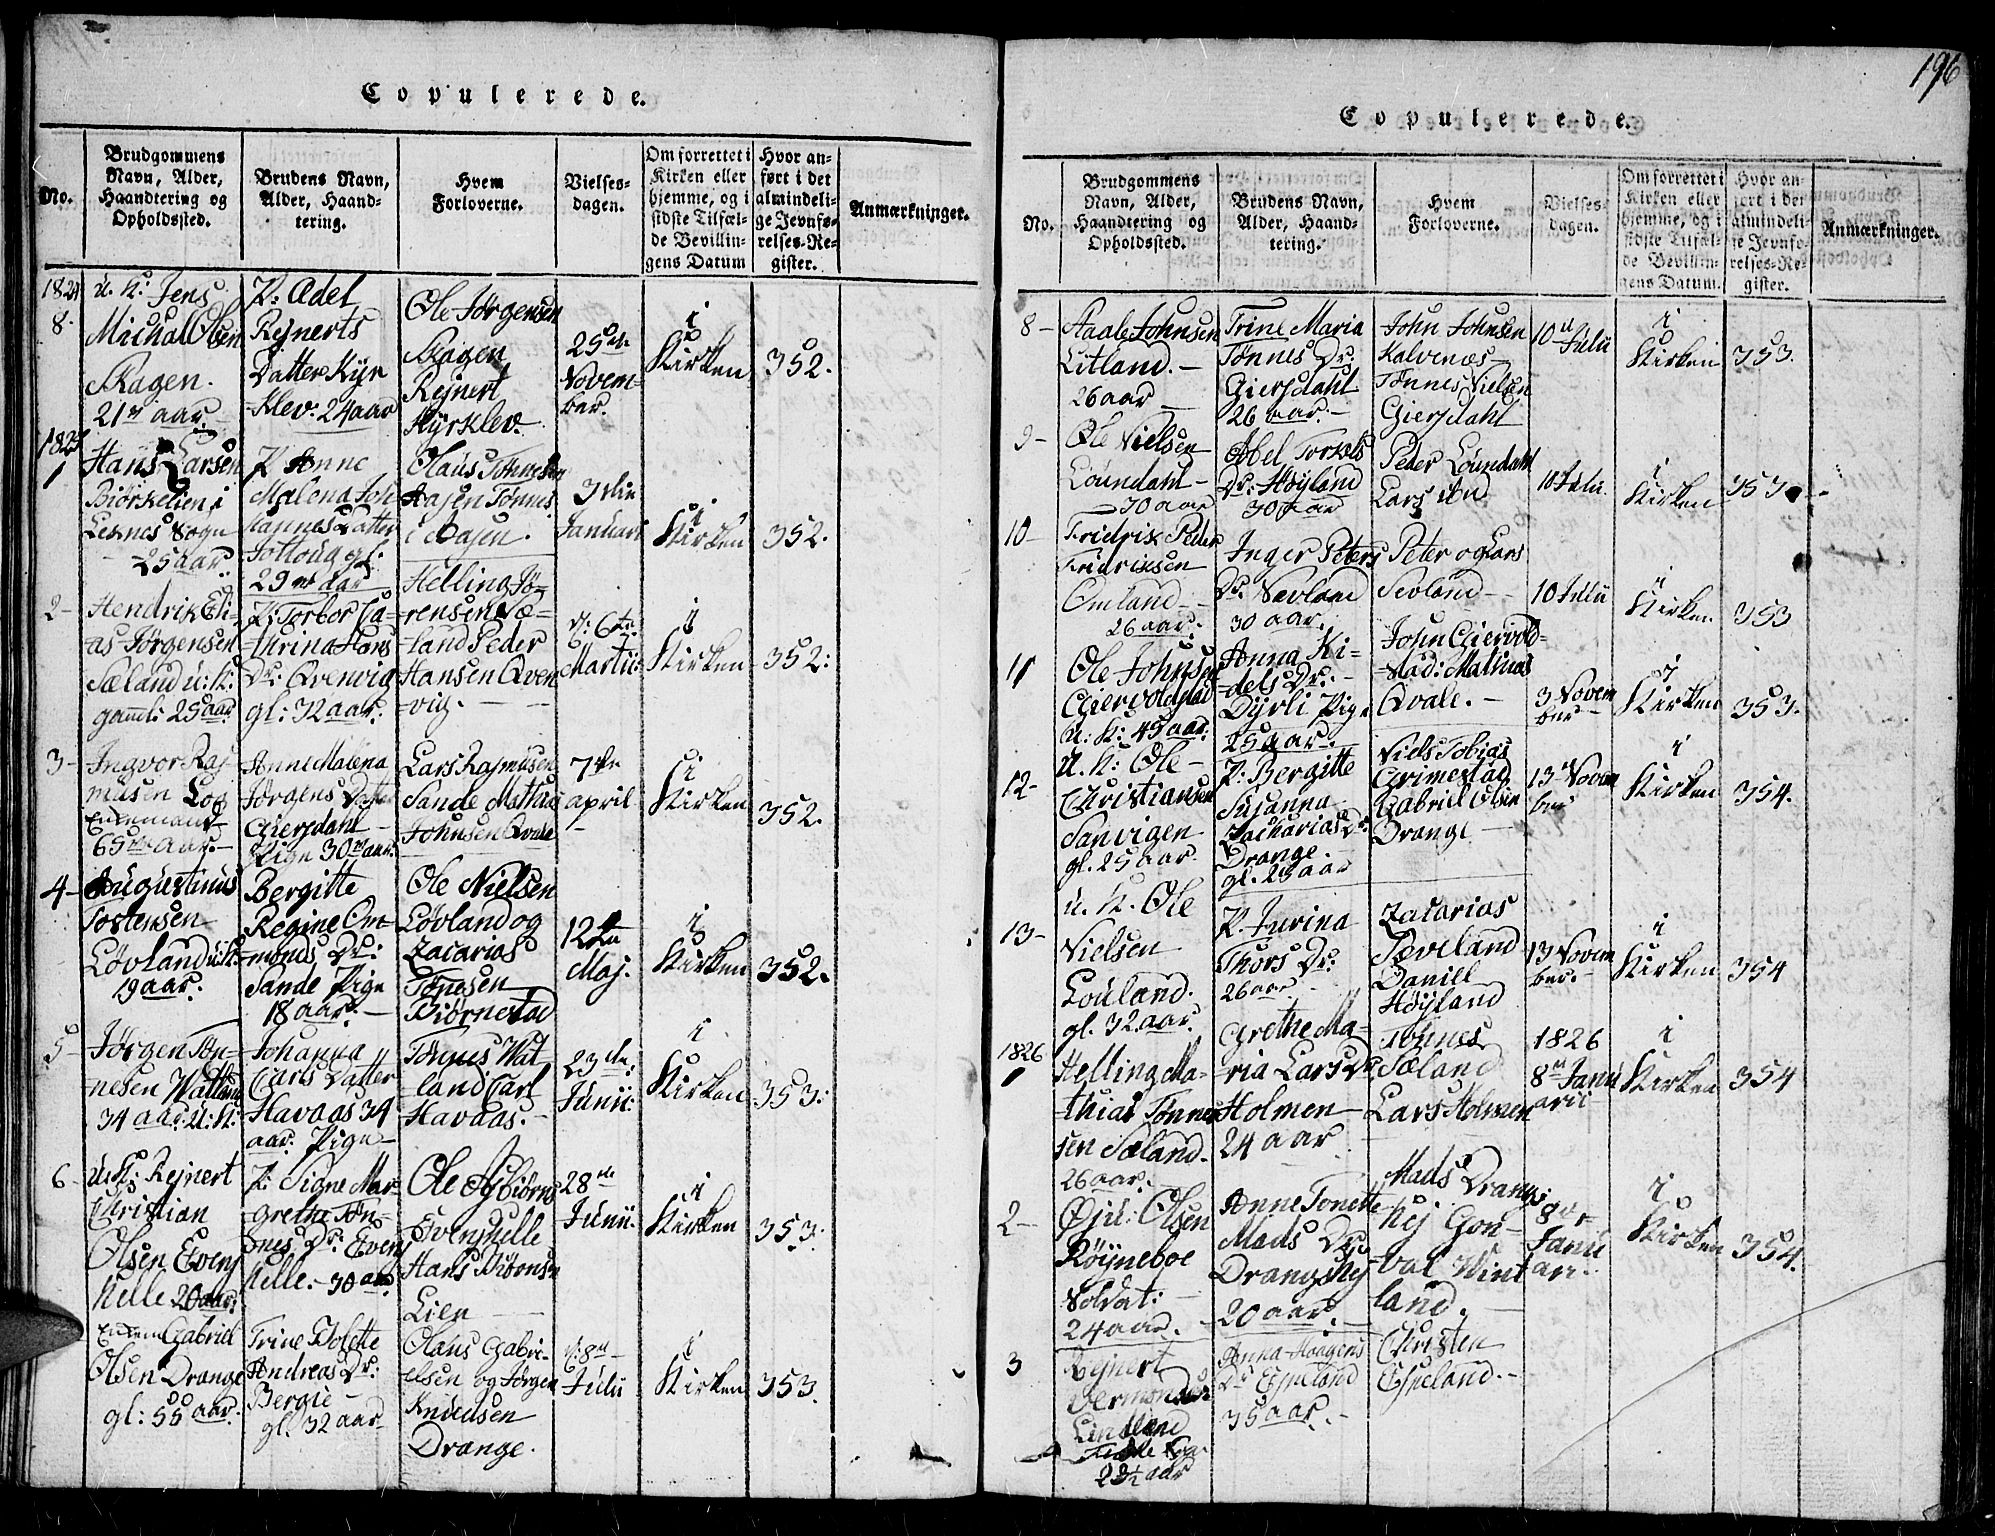 Copulerede.
No.
Brudgommens
Navn, Alder,
Haandtering og
Opholdssted.
Brudens Navn,
Alder, Haand-
tering.
Hvem
Forloverne.
Vielses-
dagen.
Om forrettet i
Kirken eller
hjemme, og i
sidste Tilfæl-
de Bevillin-
gens Datum
Hvor an-
ført i det
almindeli-
ge Jevnfø-
relses-Re-
gister.
Anmærkninger.
1824
8.
u. K: Jens
Michal Olsen
Skagen.
21 aar.
P: Adel
Rejnerts
Datter Kyr
Klev: 24 aar
Ole Jörgensen
Skagen
Rejnert
Kyrklev.
25de
Novem-
ber.
i
Kirken
352.
1825
1
Hans Larsen
Biörkelien i
Lexnes Sogn
25 aar.
P Anne
Malena Joh-
annes Datter
gl:
29 aar
Olaus Tönnesen
Aasen Tönnes
i Aasen.
3die
Januari
i
Kirken
352.
2-
Hendrik Eli-
as Jörgensen
Sæland u: K:
gaml: 25 aar.
P: Torbor Ca-
thrina Hans
Dr: Qvenvig
gl: 32 aar.
Helling Jö-
rensen Sæ-
land Peder
Hansen Qven
-vig.
d: 6te
Martii
i
Kirken
352:
3-
Ingvor Ras
musen Log
Enkemand
65 aar.
Anne Malena
Jörgens Datter
Giersdahl
Pige 30 aar.
Lars Rasmusen
Sande Mathias
Johnsen Qvale
7de
april
i
Kirken
352.
4-
Augustinus
Tostensen
Lövland u: K.
19 aar.
Bergitte
Regine Om-
monds Dr:
Sande Pige
18 aar.
Ole Nielsen
Lövland og
Zacarias
Tönesen
Biörnestad
12te
Maj.
i
Kirken
352.
5-
Jörgen Tön-
nesen Watland
34 aar: U: K:
Johanna
Carls Datter
Havaas 34
aar. Pige
Tönnes Wat-
land Carl
Havaas.
23de
Junii:
i
Kirken
353:
6-
u: K: Rejnert
Christian
Olsen Evens
Kelle 20 aar:
P: Signe Mar-
grethe Tön-
nes Dr: Evens
Kelle. 30 aar
Ole Asbiörns
Evenskelle
Hans
Lien
28de
Junii.
i
Kirken
353.
Enkem Gabriel
Olsen Drange
gl: 55 aar.
Trine Bolette
Andreas Dr:
Bergie
gl. 32 aar
Olaus Gabri-
elsen og Jörgen
Knudsen
Drange.
d: 8de
Julii
i
Kirken
353.
196
Copulerede.
No.
Brudgommens
Navn, Alder,
Haandtering og
Opholdssted.
Brudens Navn,
Alder, Haand-
tering.
Hvem
Forloverne.
Vielses-
dagen.
Om forrettet i
Kirken eller
hjemme, og i
sidste Tilfæl-
de Bevillin-
gens Datum.
Hvor an-
ført i det
almindeli-
ge Jevnfø-
relses-Re-
gister.
Anmærkninger.
8-
Aaale Johnsen
Litland.
26 aar
Trine Maria
Tönnes Dr:
Giersdahl
26 aar.
John Johnsen
Kalvenæs
Tönnes Nielsen
Giersdahl
10de Julii
i
Kirken
353.
9-
Ole Nielsen
Loundahl
30 aar
Abel Torkels
Dr: Höyland
30 aar
Peder Loundahl
Lars
10 Julii
i
Kirken
353
10-
Fridrik Peder
Fridriksen
Omland
26 aar.
Inger Peters
Dr: Sevland
30 aar.
Peter og Lars
Sevland
10 Julii
i
Kirken
353
11
Ole Johnsen
Giervoldstad
U: K: 45 aar:
Anna Ki-
dels Dr.
Dyrli Pige
25 aar.
John Giervold-
stad: Mathias
Qvale.
3 Novem
ber
i
Kirken
353.
12-
U. K: Ole
Christiansen
Sanvigen
gl. 25 aar.
P: Bergitte
Susanna
Zacharias Dr:
Drange
gl. 25 aar
Niels Tobias
Grimestad
Gabriel Olsen
Drange
13de Novem
ber
i
Kirken
354.
13-
u. K. Ole
Nielsen
Louland.
gl. 32 aar.
P. Jurina
Thors Dr:
26 aar
Zacarias
Seveland
Daniel
Höyland
13 Novem
ber.
i
Kirken
354
1826
1
Helling Ma-
thias Tönne-
sen Sæland.
26 aar.
Grethe Ma-
ria Lars Dr
Holmen
24 aar
Tönnes
Sæland
Lars Holmen
1826
8de Janu
arii
i
Kirken
354
2-
Öju: Olsen
Röyneboe
Soldat:
24 aar.
Anne Tonette
Mads Dr:
Drangshej
20 aar.
Mads Drangs
hej Gon-
val Wint
land.
8de
Janu
ari.
i
Kirken
354.
3
Rejnert
Linland
23½ aar
Anna Haagens
Dr Espeland
35 aar.
Christen
Espeland.